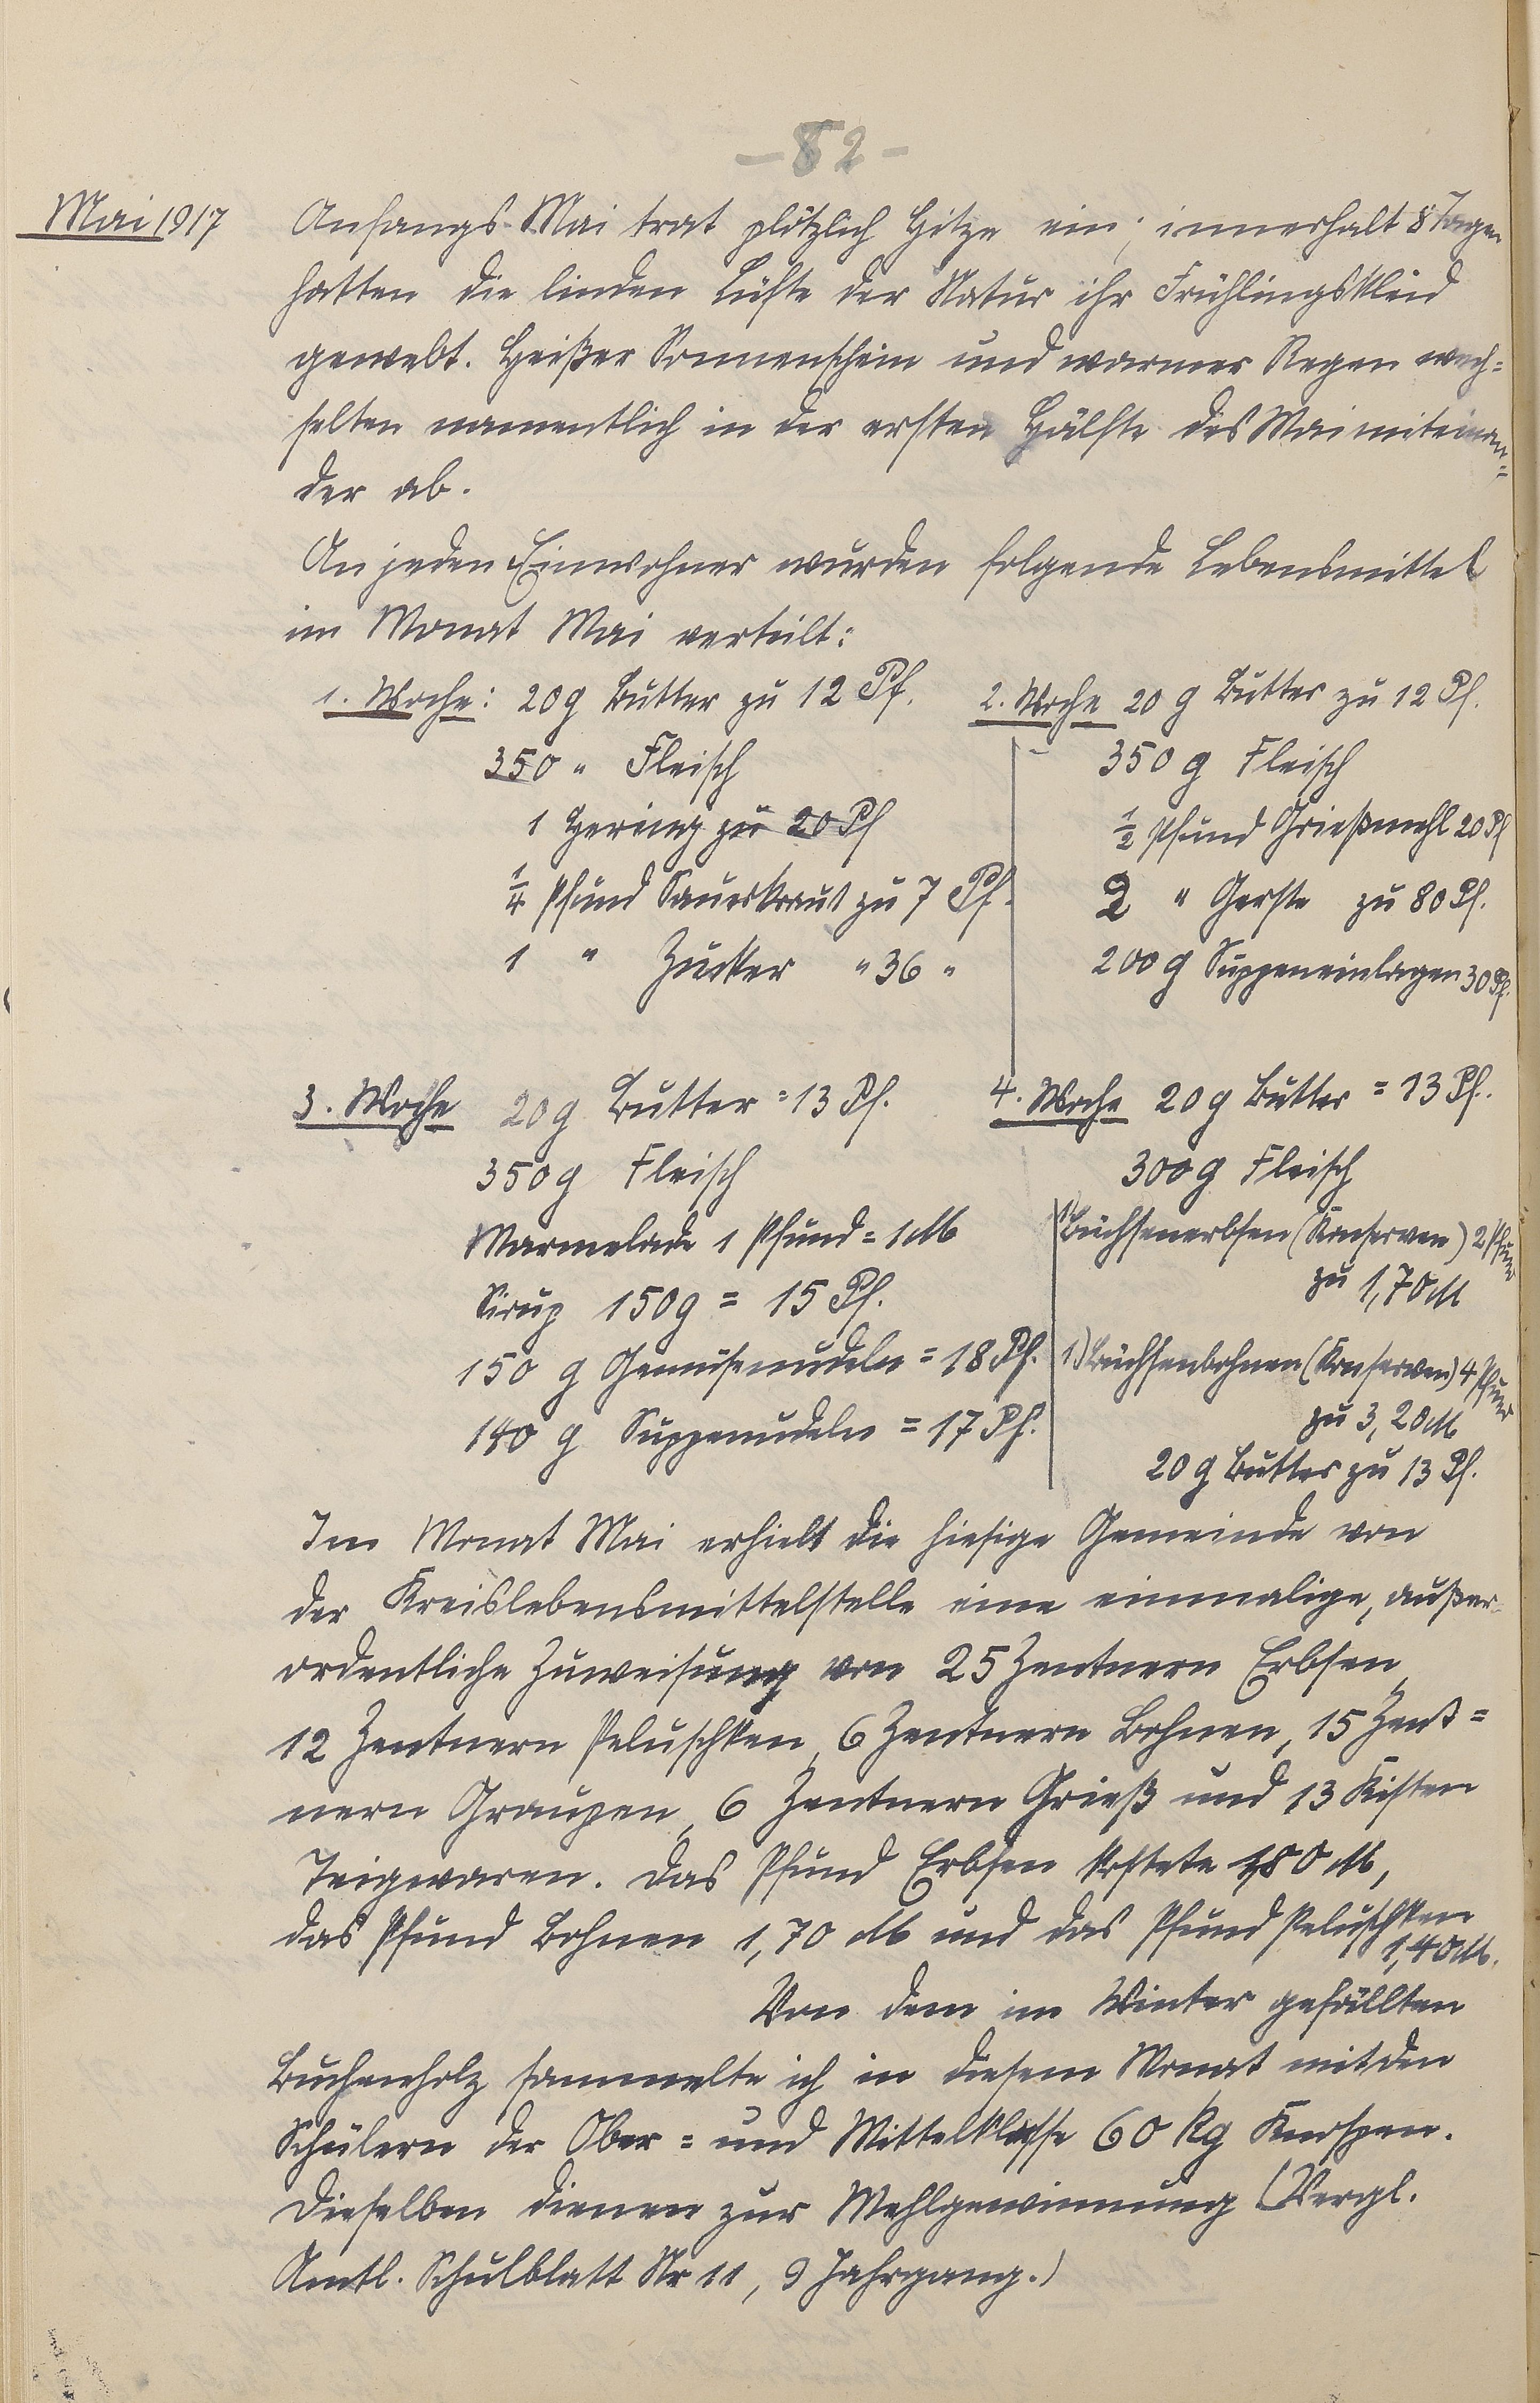 -82-
Mai 1917
Anfangs Mai trat plötzlich Hitze ein; innerhalt 8 Tagen
hatten die linden Lüfte der Natur ihr Frühlingskleid
gewebt. Heißer Sonnenschein und warmer Regen wech=
selten namentlich in der ersten Hälfte des Mai miteinan=
der ab.
An jeden Einwohner wurden folgende Lebensmittel
im Monat Mai verteilt:
1. Woche: 20g Butter zu 12 Pf.
350 " Fleisch
1 Hering zu 20 Pf
1/4 Pfund Sauerkraut zu 7 Pf.
1 " Zucker " 36 "
2. Woche 20 g Butter zu 12 Pf.
350 g Fleisch
1/2 Pfund Grießmehl 20 Pf
2 " Gerste zu 80 Pf.
200 g Suppeneinlagen 30 Pf.
3. Woche 20g Butter = 13 Pf.
350g Fleisch
Marmelade 1 Pfund = 1 M
Sirup 150g = 15 Pf.
150 g Gemüsenudeln = 18 Pf.
140 g Suppenudeln = 17 Pf.
4. Woche 20 g Butter = 13 Pf.
300 g Fleisch
1) Büchsenerbsen (Konserven) 2 Pfund
zu 1,70 M
1.) Büchsenbohnen (Konserven) 4 Pfund
zu 3,20 M
20 g Butter zu 13 Pf.
Im Monat Mai erhielt die hiesige Gemeinde von
der Kreislebensmittelstelle eine einmalige, außer-
ordentliche Zuweisung von 25 Zentnern Erbsen,
12 Zentnern Peluschken, 6 Zentnern Bohnen, 15 Zent=
nern Graupen, 6 Zentnern Grieß und 13 Kisten
Teigwaren. Das Pfund Erbsen kostete 1,80 M,
das Pfund Bohnen 1,70 M und das Pfund Peluschken
1,40 M.
Von dem im Winter gefällten
Buchenholz sammelte ich in diesem Monat mit den
Schülern der Ober= und Mittelklasse 60 kg Knospen.
Dieselben dienen zur Mehlgewinnung (Vergl.
Amtl. Schulblatt Nr 11, 9 Jahrgang.)